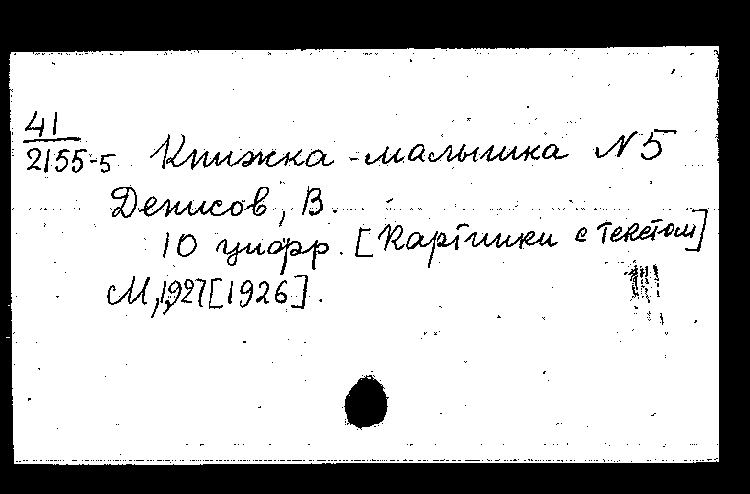 41
2155-5 Книжка-малышка N 5
Денисов, В.
10 цифр. [Картинки с текстом]
М., 1927 [1926].